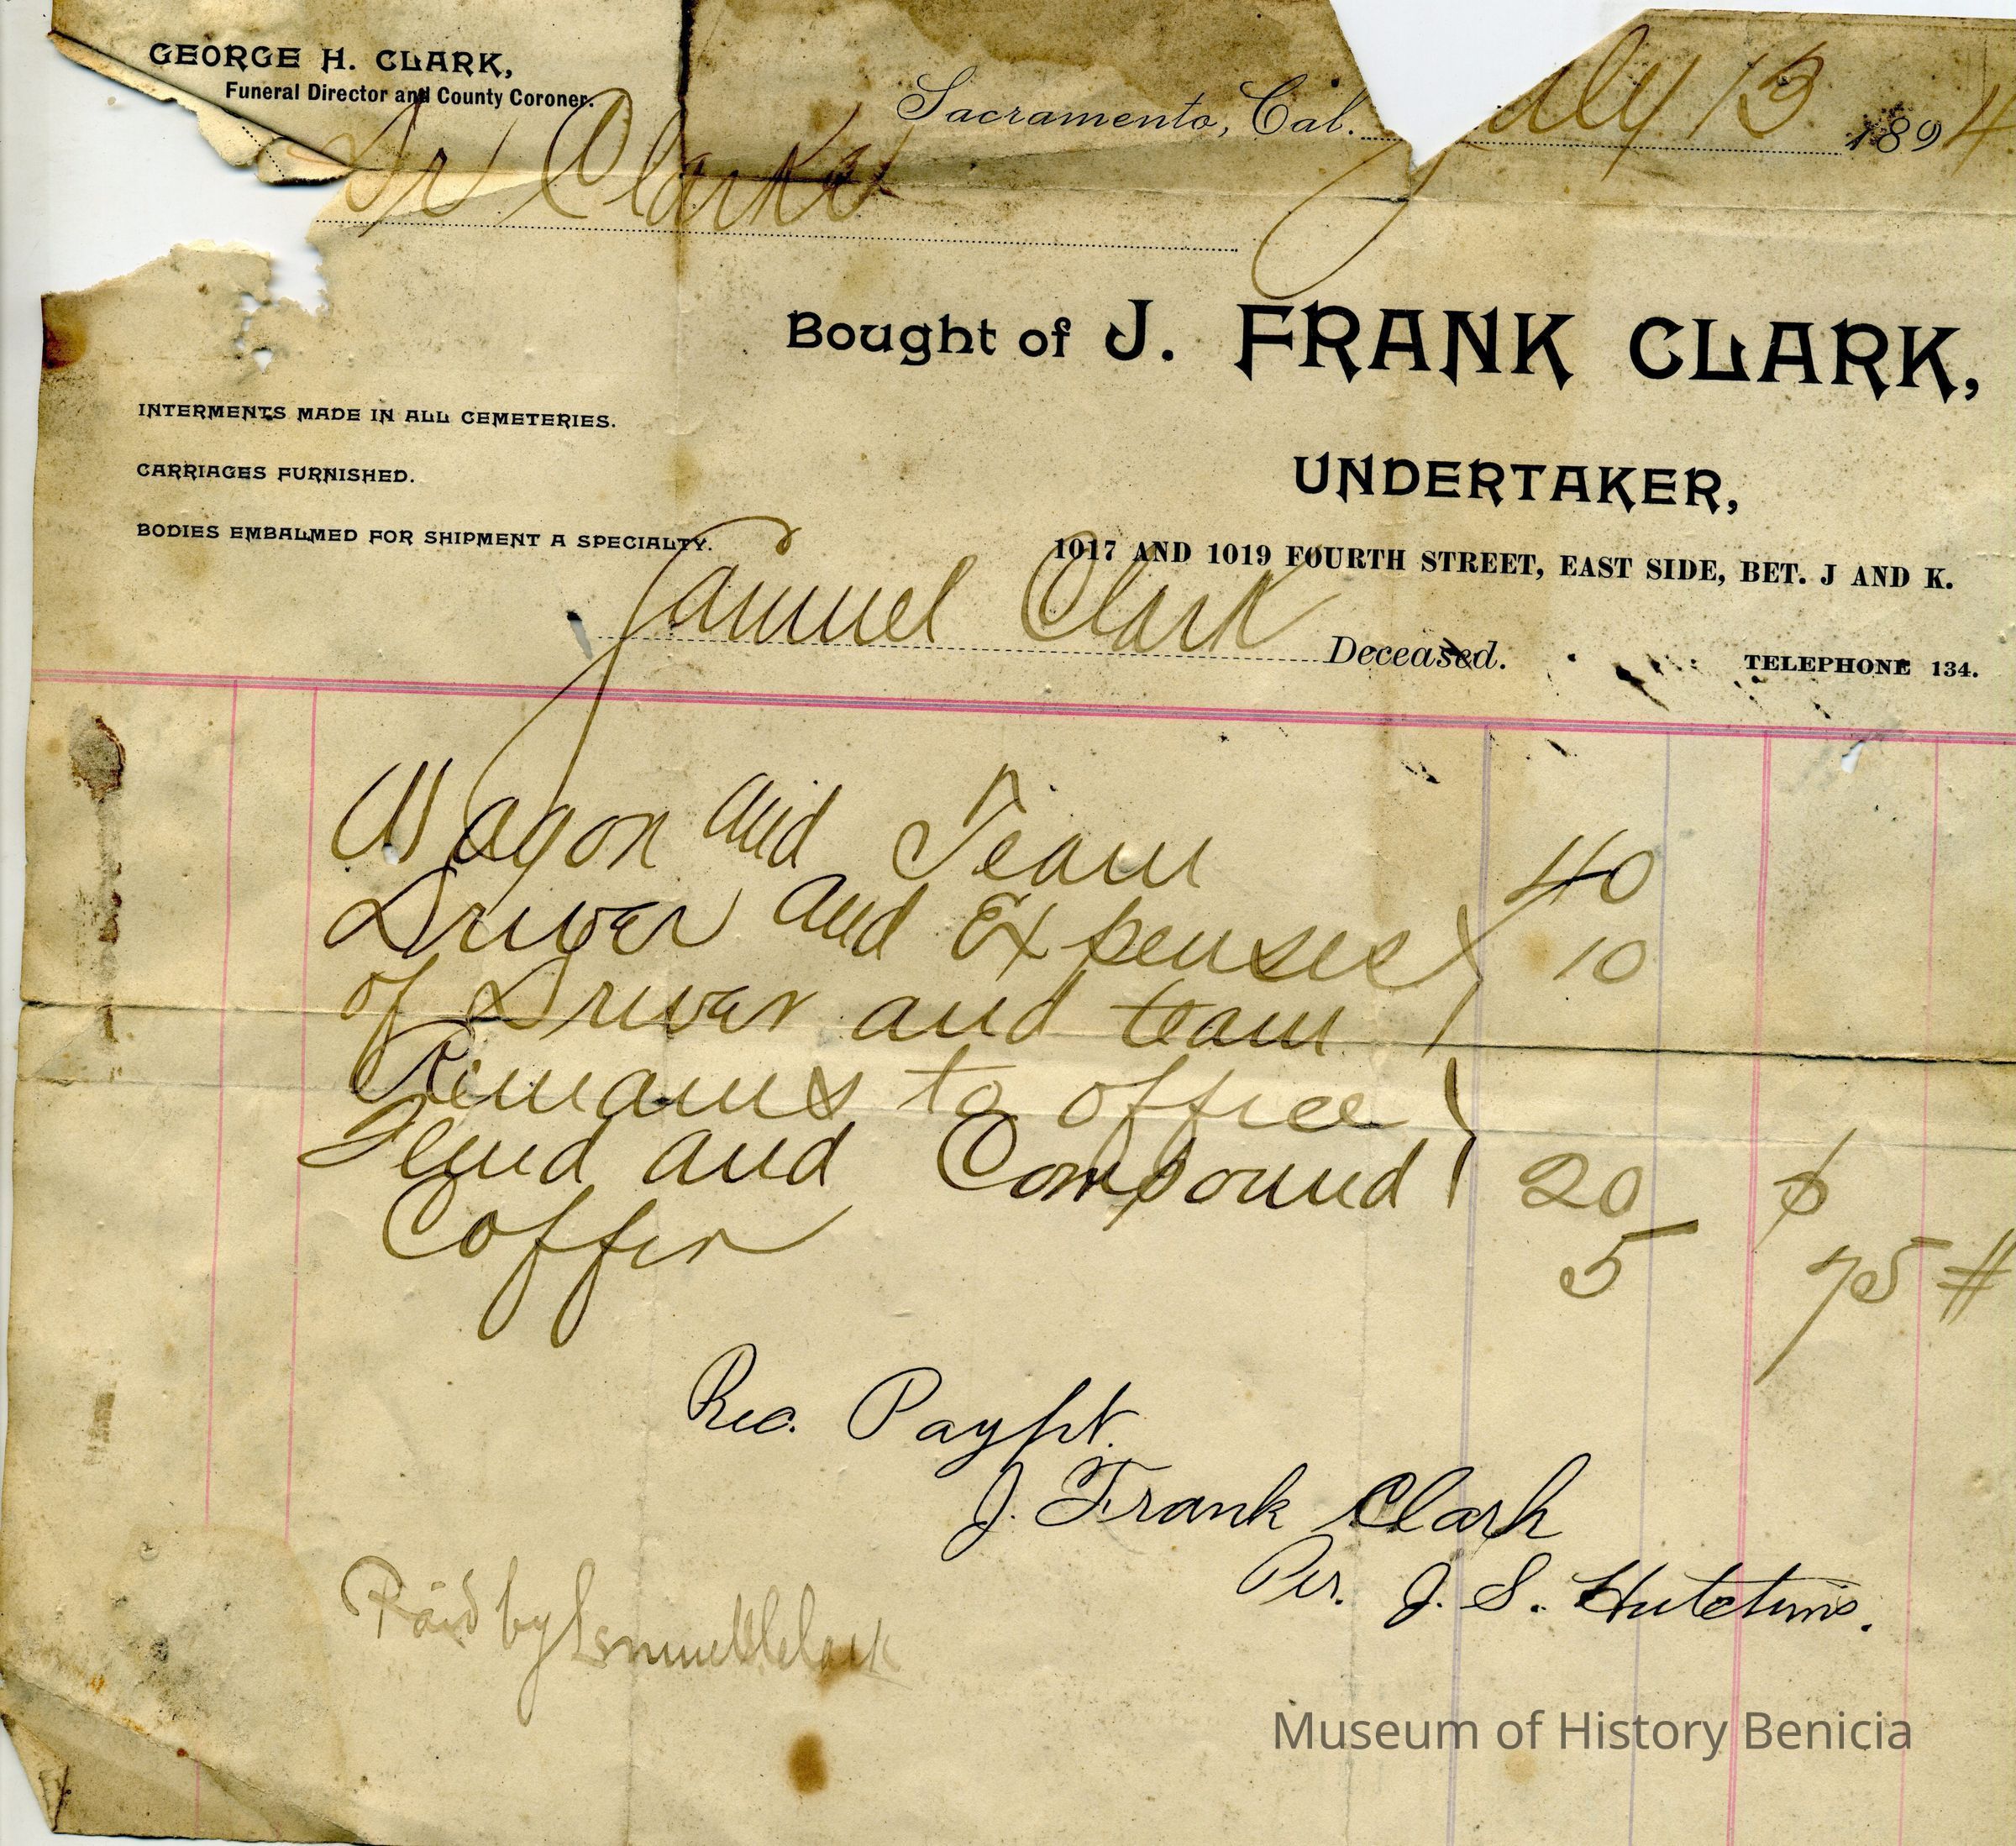 GEORGE H. CLARK,
Funeral Director and County Coroner.
Sacramento, Cal. July 13 1894
Dr Clarke
Bought of J. FRANK CLARK,
INTERMENTS MADE IN ALL CEMETERIES.
CARRIAGES FURNISHED.
UNDERTAKER,
BODIES EMBALMED FOR SHIPMENT A SPECIALTY.
1017 AND 1019 FOURTH STREET, EAST SIDE, BET. J AND K.
Samuel Clark Deceased.
TELEPHONE 134.
Wagon and Team 40
Driver and Expenses 10
of Driver and team
Remains to office
Fluid and Compound 20 $
Coffin 5 75
Rec. Paypt.
J. Frank Clark
Per. J. S. Hutchins.
Paid by Lemuel Clark
Museum of History Benicia